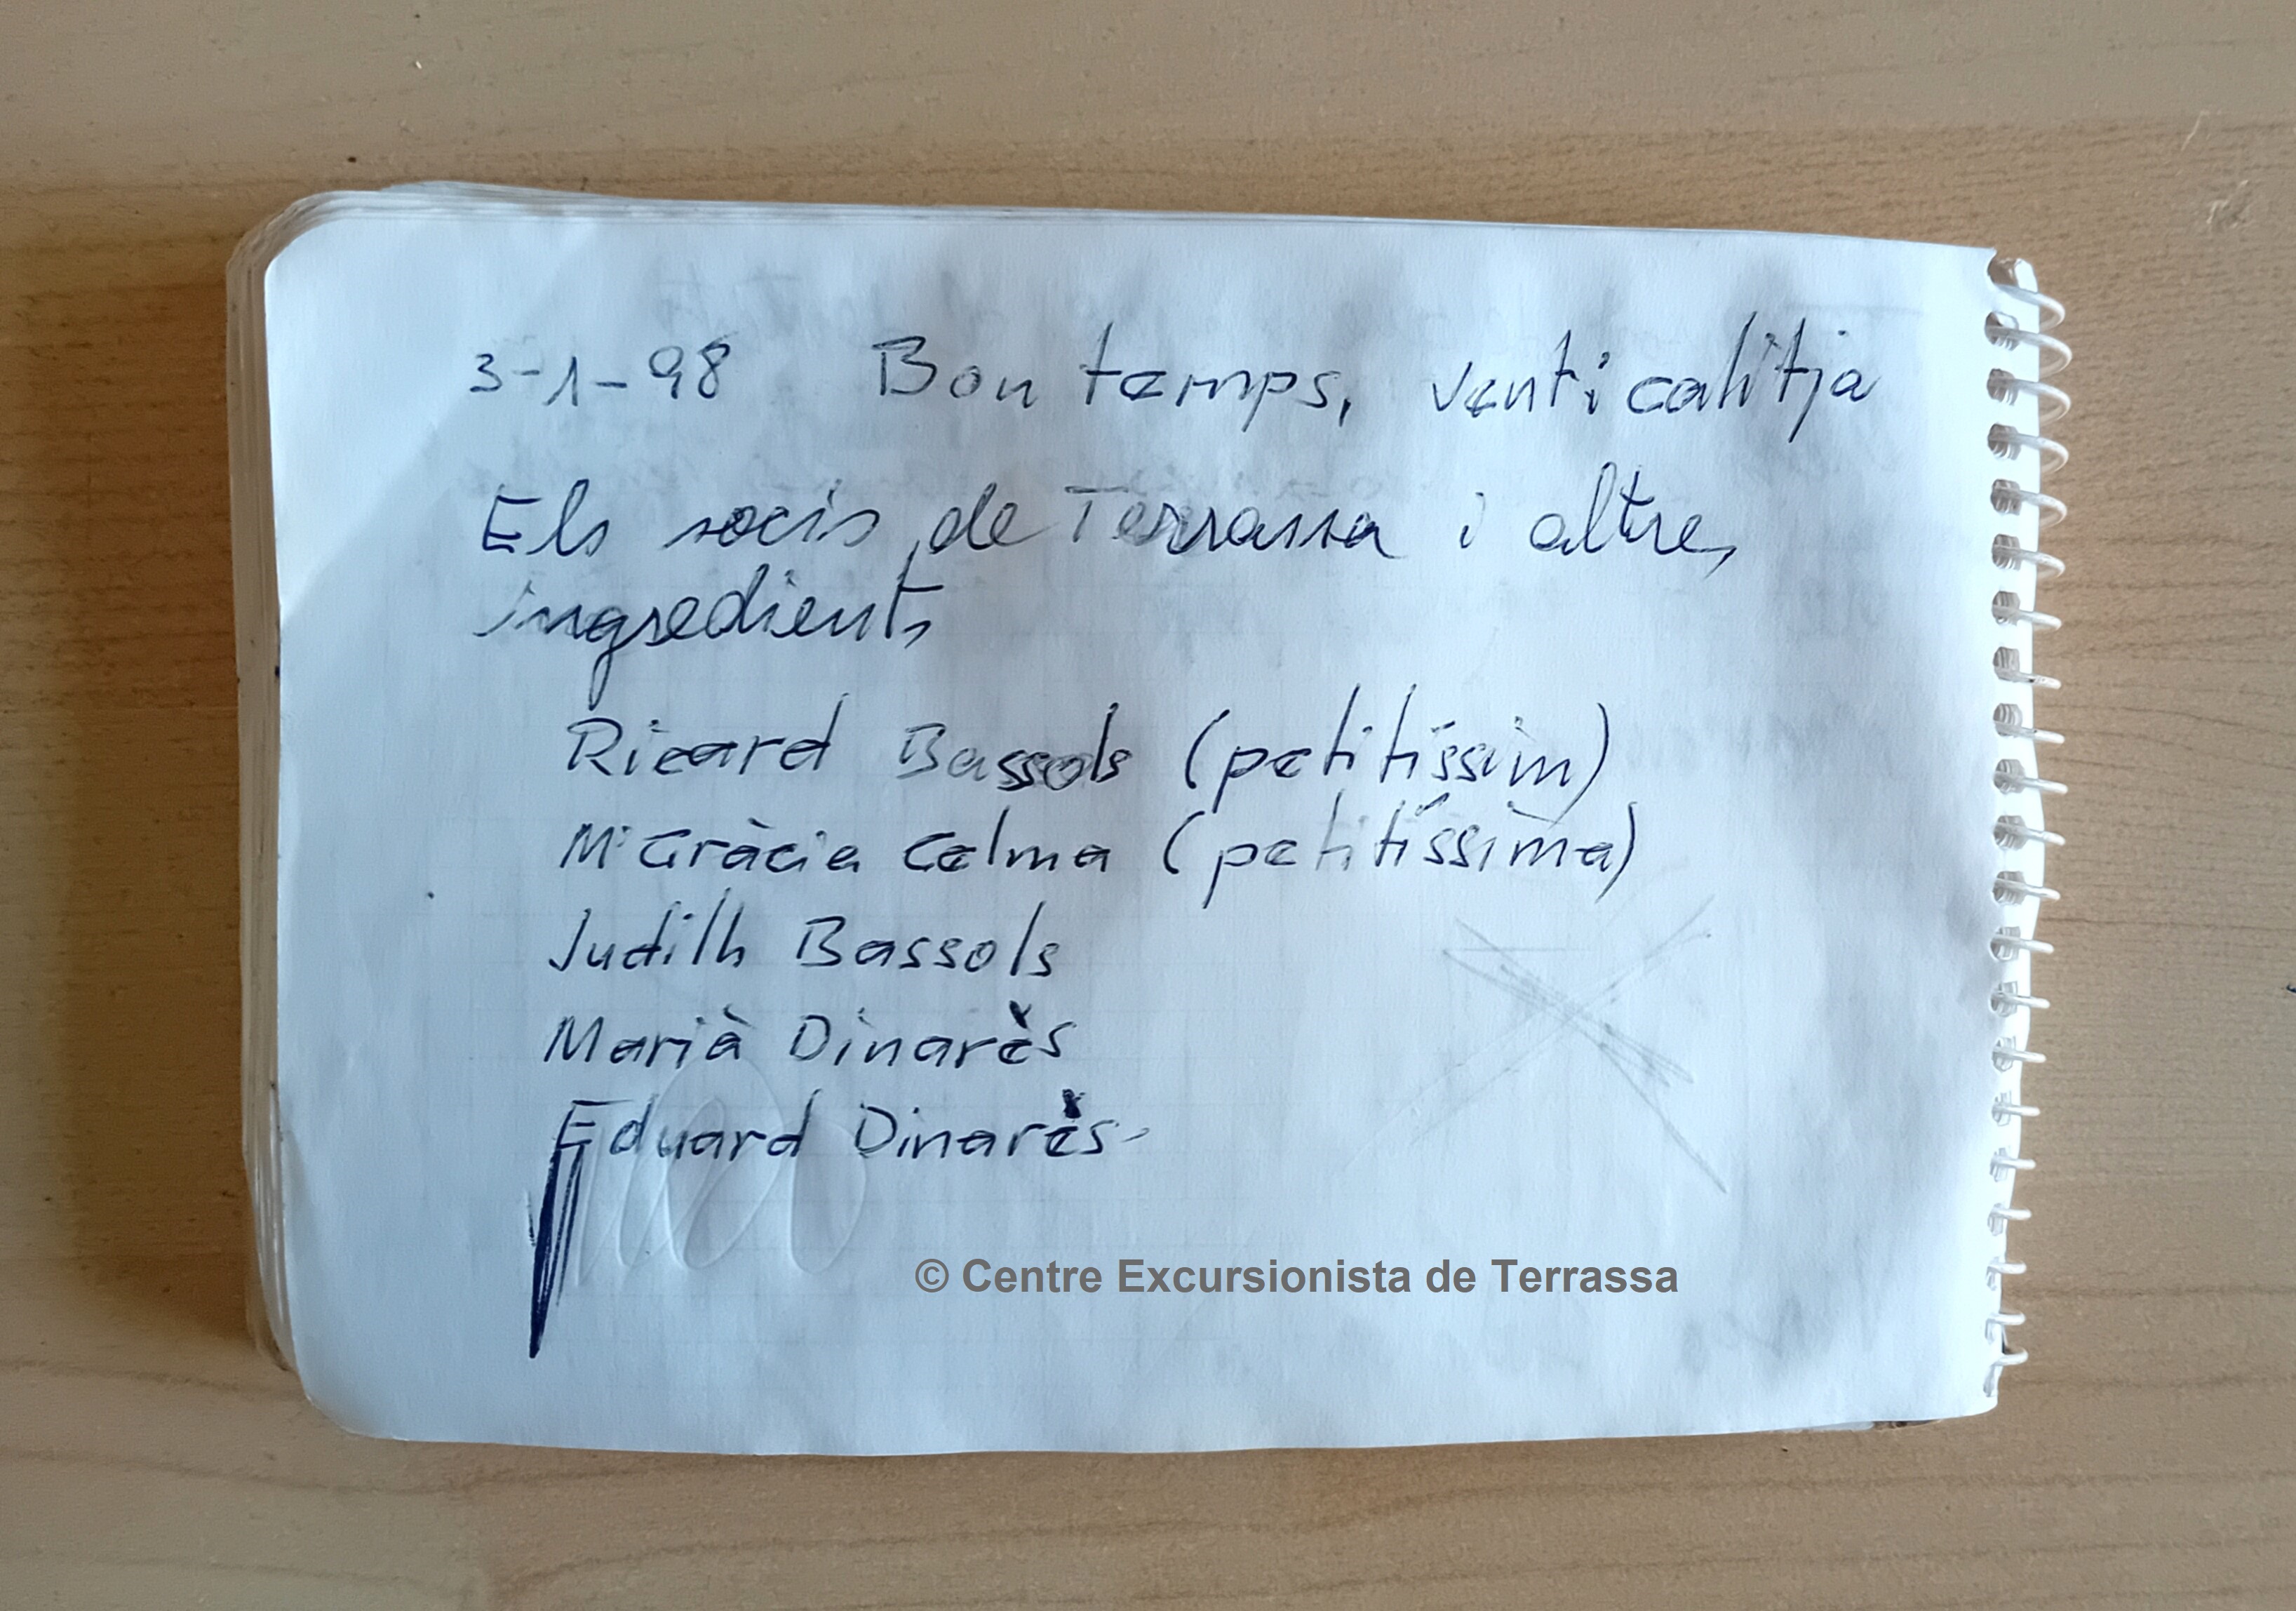 3-1-98 Bon temps, vent i calitja
Els socis de Terrassa i altres
ingredients
Ricard Bassols (petitíssim)
Mª Gràcia Celma (petitíssima)
Judith Bassols
Marià Dinarès
Eduard Dinarès
© Centre Excursionista de Terrassa